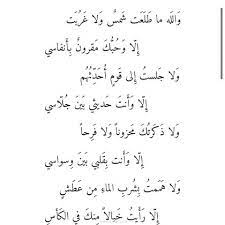 وَاللَه ما طَلَعَت شَمسٌ وَلا غَرُبَت
إِلّا وَحُبُّكَ مَقرونٌ بِأَنفاسي
وَلا جَلستُ إِلى قَومٍ أُحَدِّثُهُم
إِلّا وَأَنتَ حَديثي بَينَ جُلّاسي
وَلا ذَكَرتُكَ مَحزوناً وَلا فَرِحاً
إِلّا وَأَنت بِقَلبي بَينَ وِسواسي
وَلا هَمَمتُ بِشُربِ الماءِ مِن عَطَشٍ
إِلّا رَأَيتُ خَيالاً مِنكَ في الكَأسِ